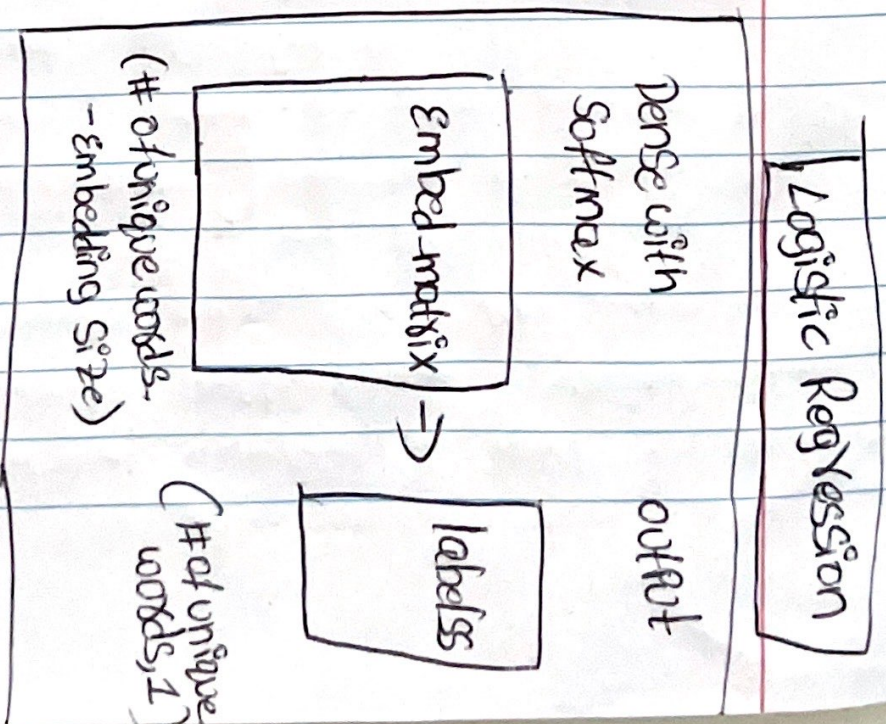 Logistic Regression
Dense with
Softmax
output
Embed-matrix →
labels
(# of unique words-
-Embedding Size)
(# of unique
words, 1)